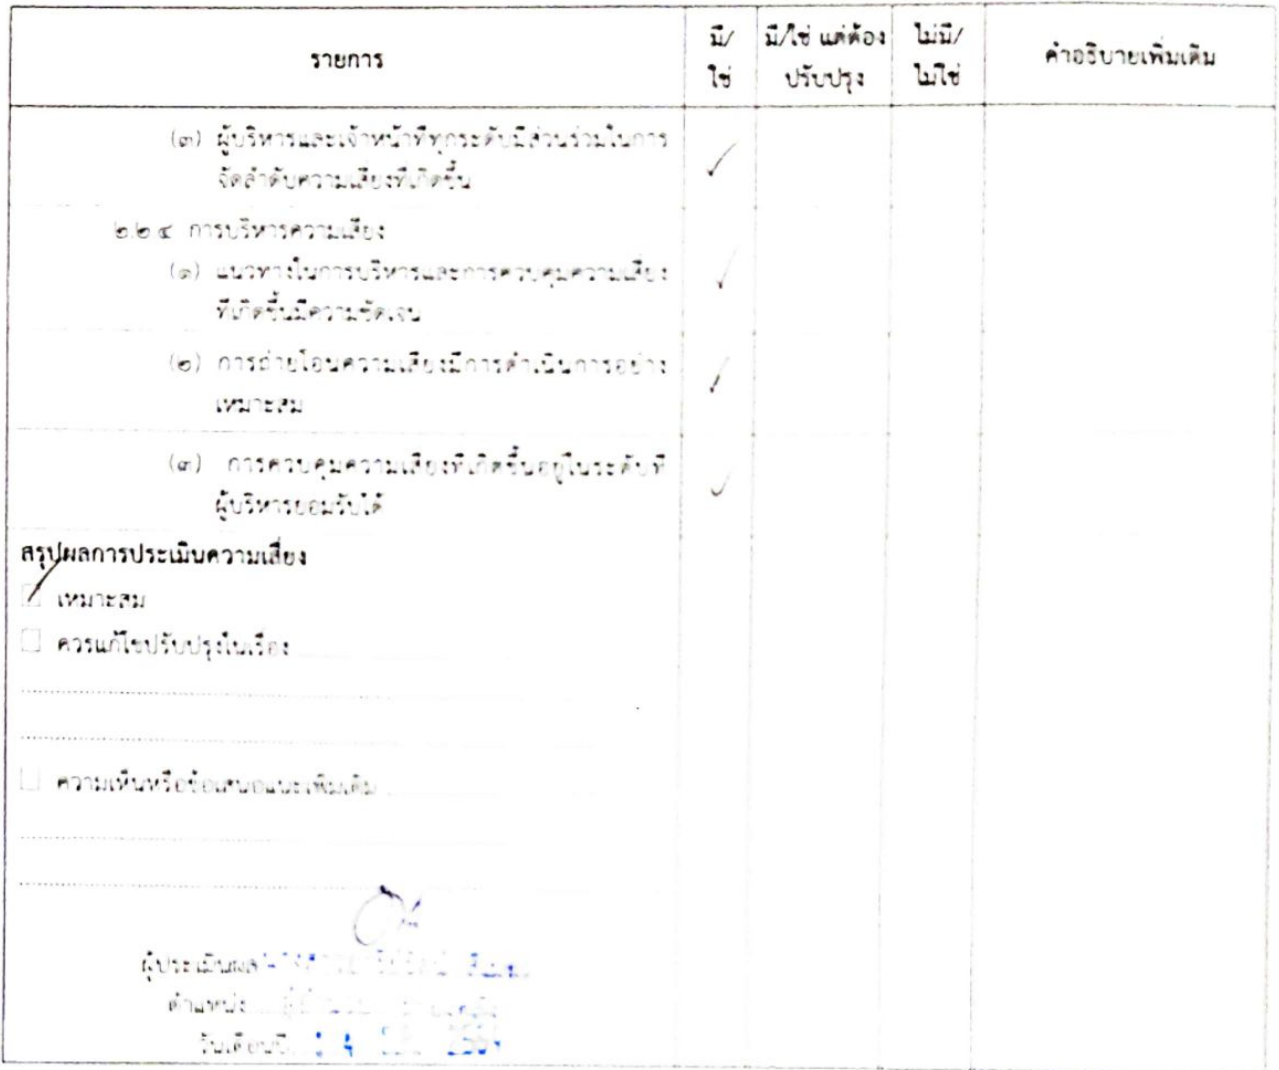 รายการ
มี/
ใช่
มี/ใช่ แต่ต้อง
ปรับปรุง
ไม่มี/
ไม่ใช่
คำอธิบายเพิ่มเติม
(๓) ผู้บริหารและเจ้าหน้าที่ทุกระดับมีส่วนร่วมในการ
จัดลำดับความเสี่ยงที่เกิดขึ้น
๒.๒.๔ การบริหารความเสี่ยง
(๑) แนวทางในการบริหารและการควบคุมความเสี่ยง
ที่เกิดขึ้นมีความชัดเจน
(๒) การถ่ายโอนความเสี่ยงมีการดำเนินการอย่าง
เหมาะสม
(๓) การควบคุมความเสี่ยงที่เกิดขึ้นอยู่ในระดับที่
ผู้บริหารยอมรับได้
สรุปผลการประเมินความเสี่ยง
เหมาะสม
ควรแก้ไขปรับปรุงในเรื่อง
ความเห็นหรือข้อเสนอแนะเพิ่มเติม
ผู้ประเมินผล
ตำแหน่ง
วันเดือนปี